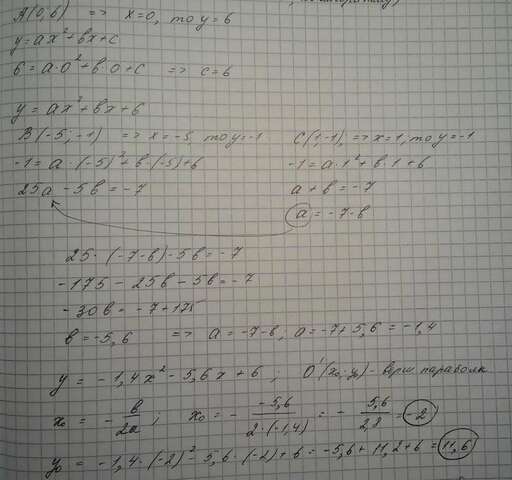 A(0,6) => x=0, то y=6
y=ax²+bx+c
6=a·0²+b·0+c => c=6
y=ax²+bx+6
B(-5;-1) => x=-5, то y=-1
-1=a·(-5)²+b·(-5)+6
25a-5b=-7
C(1,-1), => x=1, то y=-1
-1=a·1²+b·1+6
a+b=-7
a=-7-b
25·(-7-b)-5b=-7
-175-25b-5b=-7
-30b=-7+175
b=-5,6 => a=-7-b; a=-7+5,6=-1,4
y=-1,4x²-5,6x+6; O'(x₀;y₀)-верш параболы
x₀=-b/2a; x₀=- -5,6/2·(-1,4) = - 5,6/2,8 = -2
y₀=-1,4·(-2)²-5,6·(-2)+6=-5,6+11,2+6=11,6